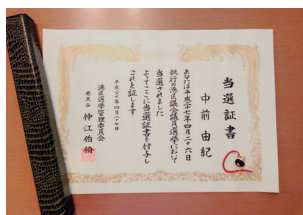 当選証書
中前由紀
あなたは平成二十七年四月二十六日
執行の港区議会議員選挙において
当選されました
よってここに当選証書を付与し
これを証します
平成二十七年四月二十七日
港区選挙管理委員会
委員長